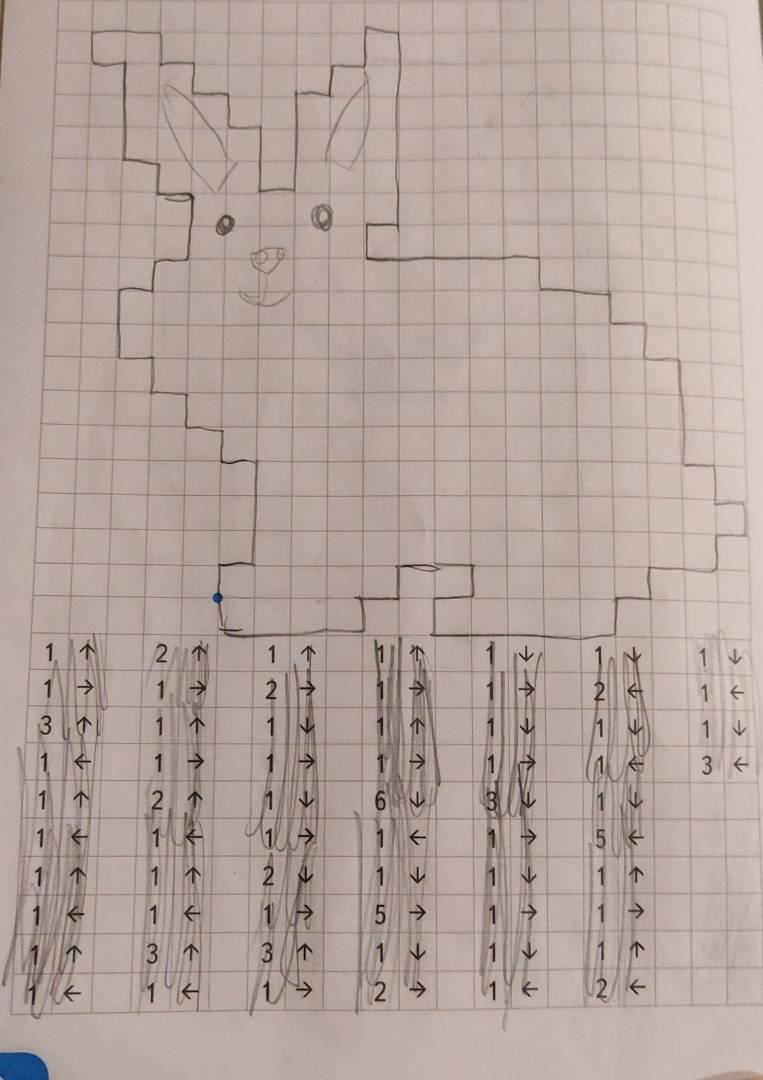 1 ↑ 2 ↑ 1 ↑ 1 ↑ 1 ↓ 1 ↓ 1 ↓
1 → 1 → 2 → 1 → 1 → 2 ← 1 ←
3 ↑ 1 ↑ 1 ↓ 1 ↑ 1 ↓ 1 ↓ 1 ↓
1 ← 1 → 1 → 1 → 1 → 1 ← 3 ←
1 ↑ 2 ↑ 1 ↓ 6 ↓ 3 ↓ 1 ↓
1 ← 1 ← 1 → 1 ← 1 → 5 ←
1 ↑ 1 ↑ 2 ↓ 1 ↓ 1 ↓ 1 ↑
1 ← 1 ← 1 → 5 → 1 → 1 →
1 ↑ 3 ↑ 3 ↑ 1 ↓ 1 ↓ 1 ↑
1 ← 1 ← 1 → 2 → 1 ← 2 ←